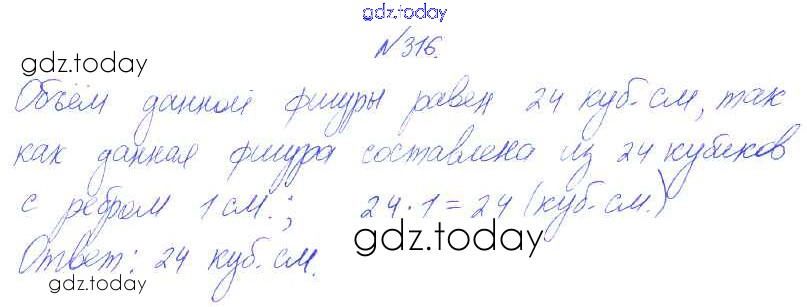 gdz.today
№316.
gdz.today
Объём данной фигуры равен 24 куб. см, так
как данная фигура составлена из 24 кубиков
с ребром 1 см.; 24 · 1 = 24 (куб. см.)
gdz.today
Ответ: 24 куб. см.
gdz.today